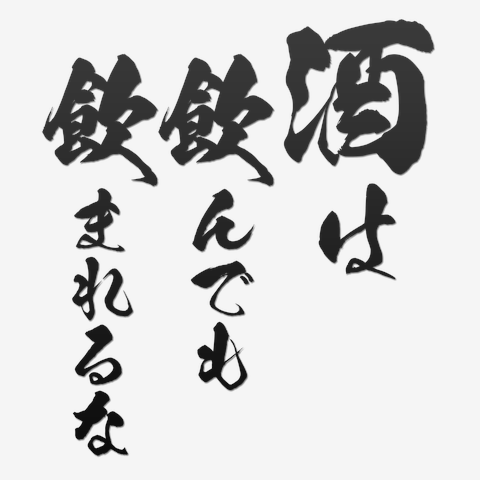 酒は
飲んでも
飲まれるな